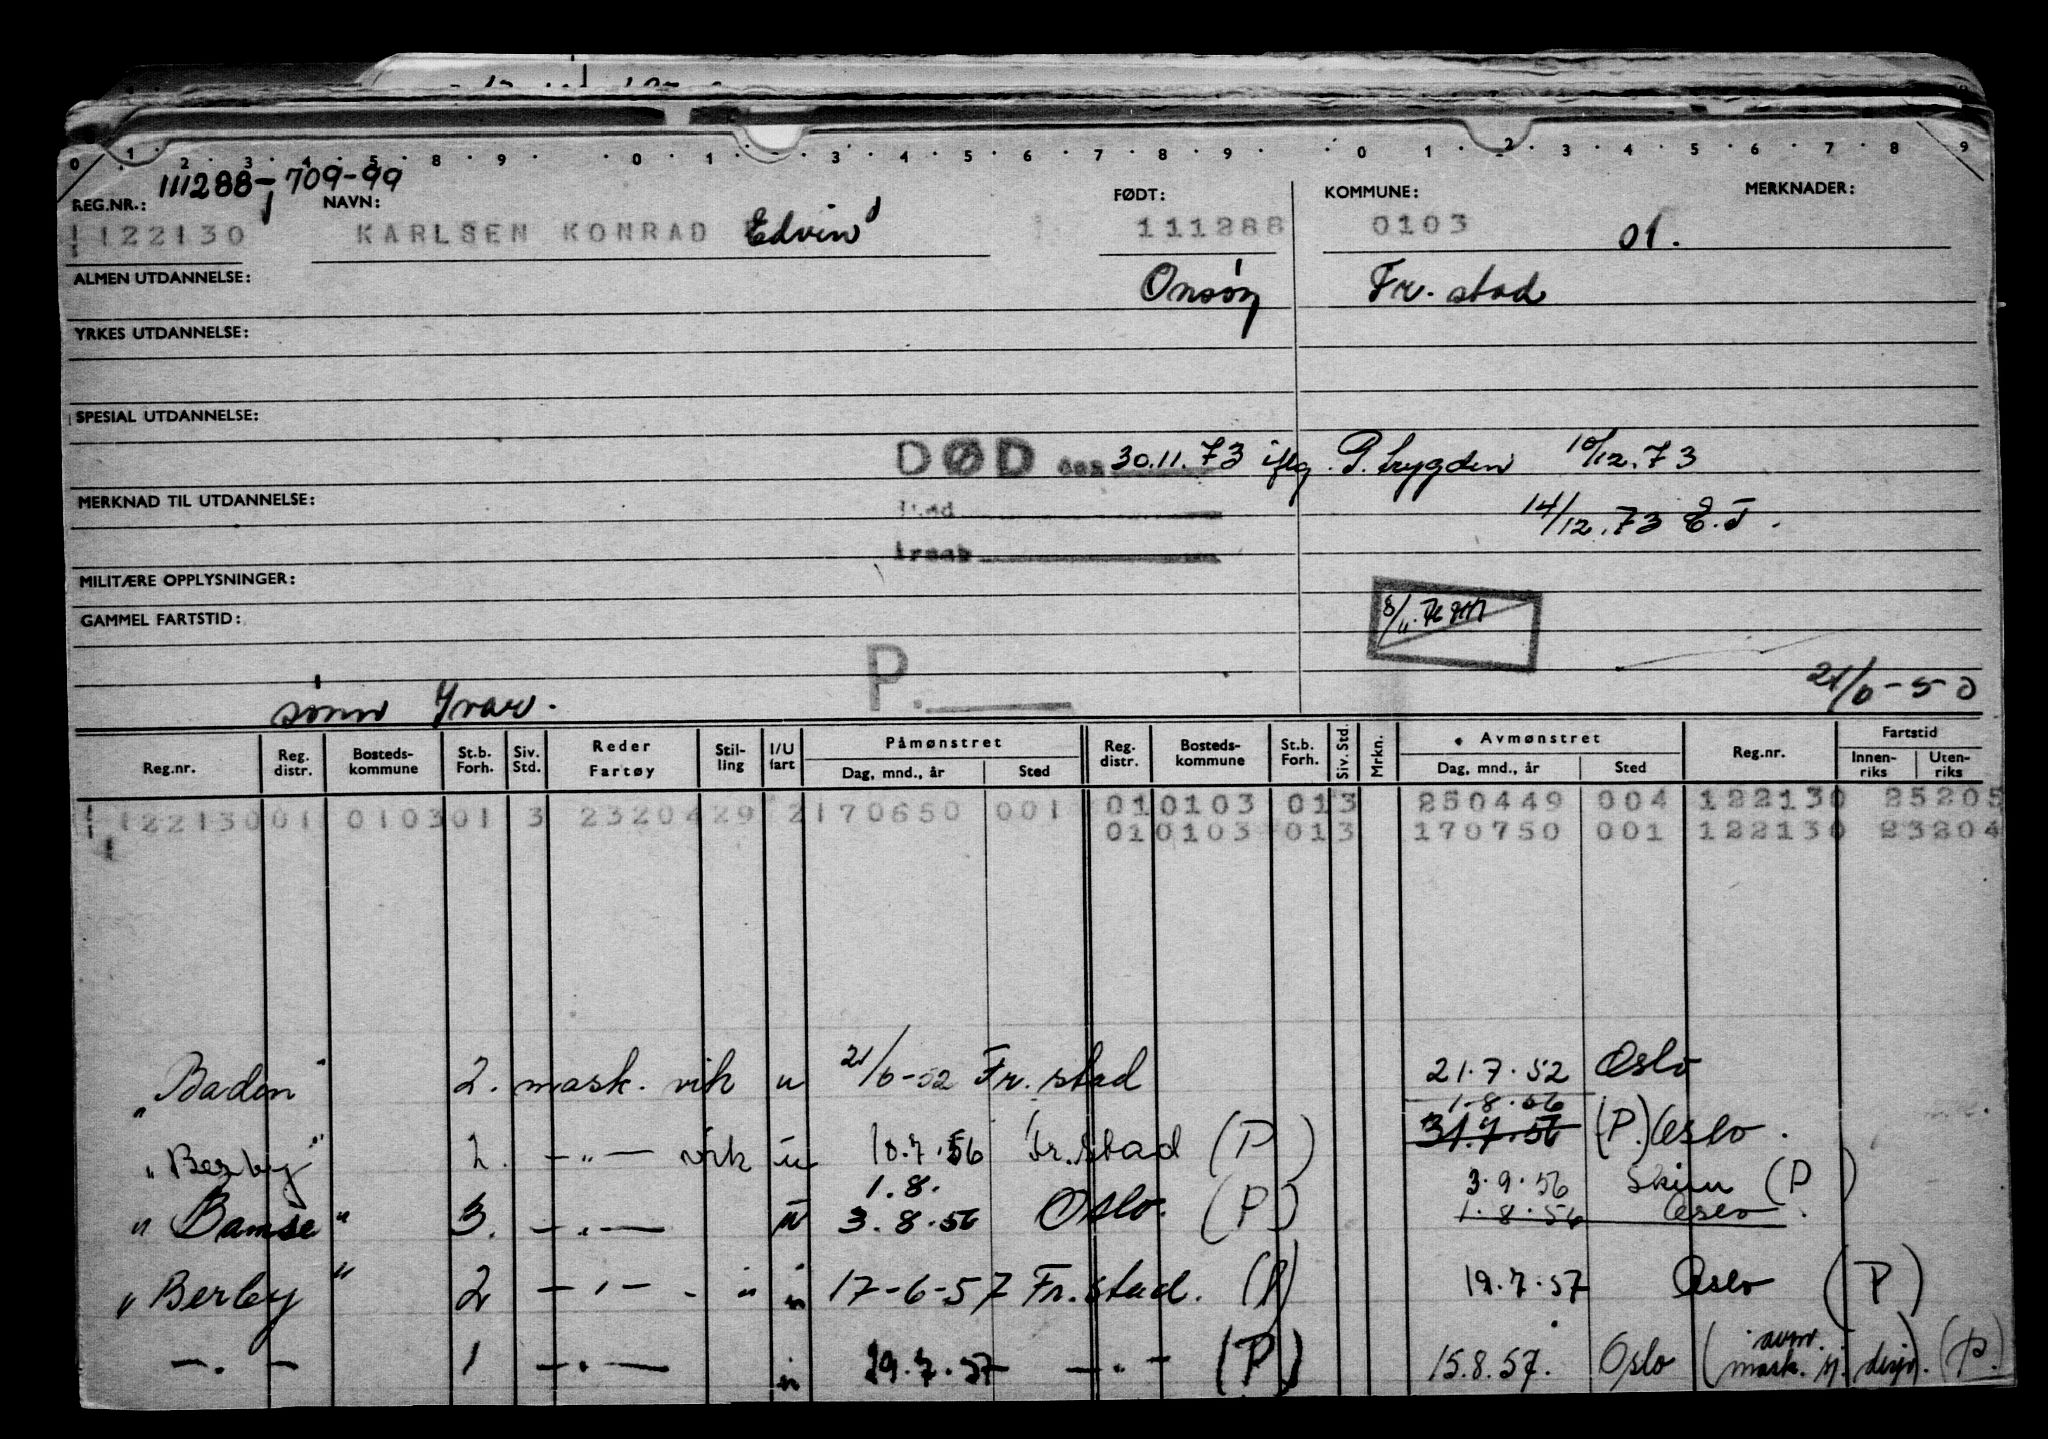 0 1 2 3 4 5 8 9 0 1 3 4 5 6 7 8 9 0 1 2 3 4 5 6 7 8 9
111288-709-99
REG.NR.: NAVN: FØDT: KOMMUNE: MERKNADER:
122130 KARLSEN KONRAD Edvin 111288 0103 01.
ALMEN UTDANNELSE: Onsøy Fr. stad
YRKES UTDANNELSE:
SPESIAL UTDANNELSE:
DØD den 30.11.73 iflg. P. trygden 10/12.73
MERKNAD TIL UTDANNELSE:
Sted 14/12.73 E.T.
Årsak
MILITÆRE OPPLYSNINGER:
GAMMEL FARTSTID: 8/11.
P.
sønn Ivar. 21/6-50
Reg.nr. Reg. distr. Bosteds- kommune St.b. Forh. Siv. Std. Reder Fartøy Stil- ling I/U fart Påmønstret Dag, mnd., år Sted Reg. distr. Bosteds- kommune St.b. Forh. Siv. Std. Mrkn. Avmønstret Dag, mnd., år Sted Reg.nr. Fartstid Innen- riks Uten- riks
122130 01 0103 01 3 2320429 2 170650 001 01 0103 01 3 250449 004 122130 25205
01 0103 01 3 170750 001 122130 23204
"Baden" 2. mask. vik u 21/6-52 Fr. stad 21.7.52 Oslo
1.8.56
"Berby" 2. -"- vik u 10.7.56 Fr.stad (P) 31.7.56 (P.) Oslo.
1.8. 3.9.56 Skien (P)
"Bamse" 3. -"- u 3.8.56 Oslo. (P) 1.8.56 Oslo.
"Berby" 2 -"- " u 17-6-57 Fr.stad. (P) 19.7.57 Oslo (P)
-"- 1 -"- u 29.7.57 -"- (P) 15.8.57. Oslo (avm. mask. disp). (P.)